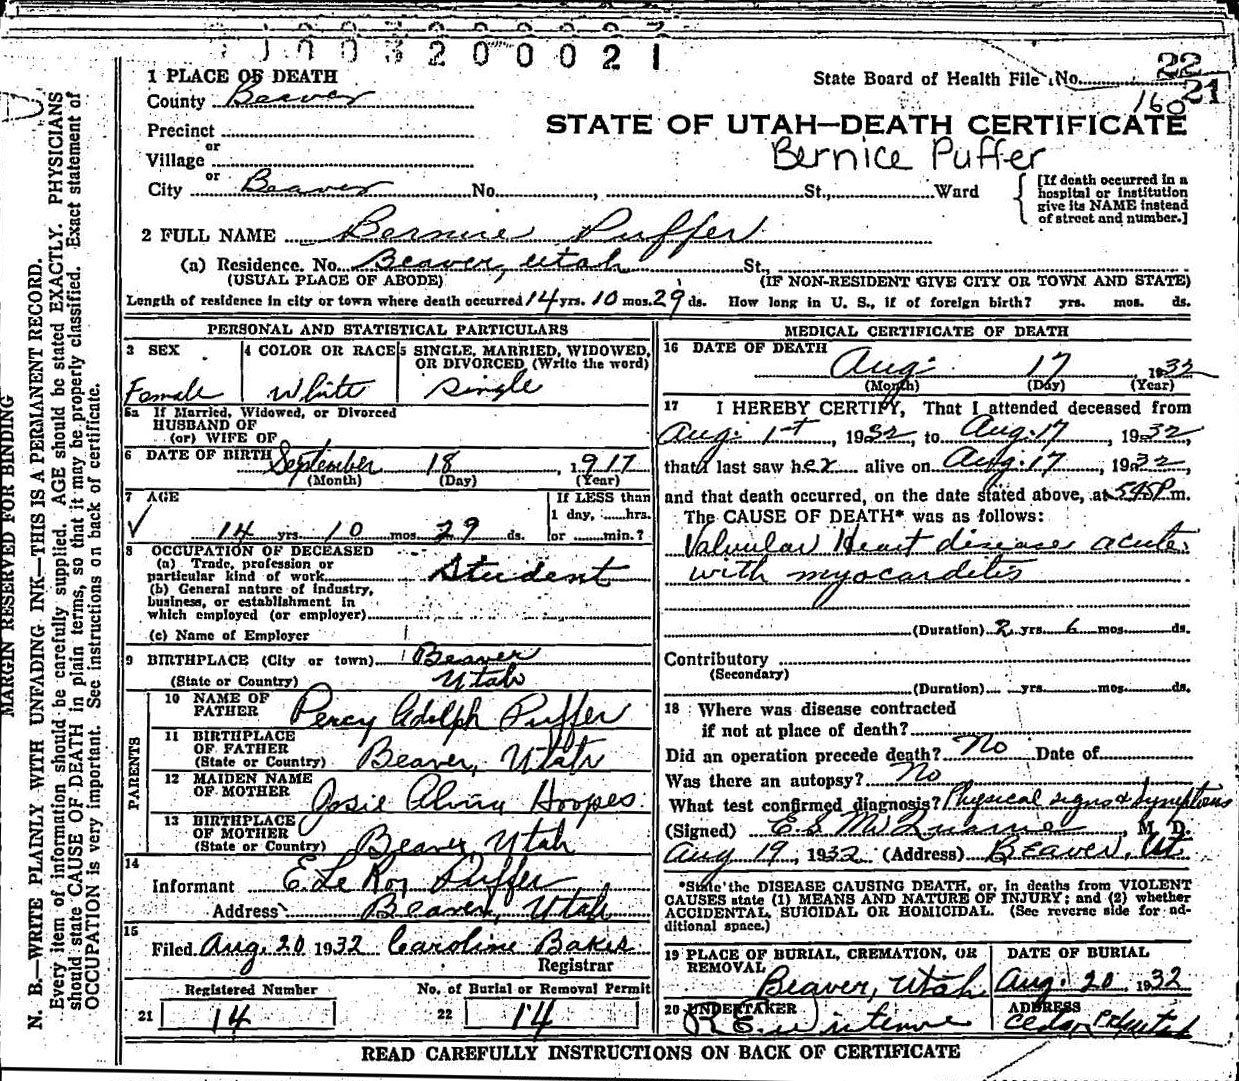 1003200021
1 PLACE OF DEATH
County Beaver
State Board of Health File No. 22
21
160
Precinct
or
Village
or
City Beaver No. , St., Ward
STATE OF UTAH—DEATH CERTIFICATE
Bernice Puffer
[If death occurred in a hospital or institution give its NAME instead of street and number.]
2 FULL NAME Bernice Puffer
(a) Residence. No. Beaver, Utah St.,
(USUAL PLACE OF ABODE) (IF NON-RESIDENT GIVE CITY OR TOWN AND STATE)
Length of residence in city or town where death occurred 14 yrs. 10 mos. 29 ds. How long in U. S., if of foreign birth? yrs. mos. ds.
PERSONAL AND STATISTICAL PARTICULARS
3 SEX
Female
4 COLOR OR RACE
White
5 SINGLE, MARRIED, WIDOWED, OR DIVORCED (Write the word)
Single
5a If Married, Widowed, or Divorced
HUSBAND OF
(or) WIFE OF
6 DATE OF BIRTH September 18, 1917
(Month) (Day) (Year)
7 AGE
14 yrs. 10 mos. 29 ds.
If LESS than
1 day, ......hrs.
or ......min.?
8 OCCUPATION OF DECEASED
(a) Trade, profession or
particular kind of work Student
(b) General nature of industry,
business, or establishment in
which employed (or employer)
(c) Name of Employer
9 BIRTHPLACE (City or town) Beaver
(State or Country) Utah
PARENTS
10 NAME OF
FATHER Percy Adolph Puffer
11 BIRTHPLACE
OF FATHER
(State or Country) Beaver, Utah
12 MAIDEN NAME
OF MOTHER Alvira Hoopes.
13 BIRTHPLACE
OF MOTHER
(State or Country) Beaver, Utah
14
Informant E. Le Roy Puffer
Address Beaver, Utah
15
Filed Aug. 20 1932 Caroline
Registrar
Registered Number
21 14
No. of Burial or Removal Permit
22 14
MEDICAL CERTIFICATE OF DEATH
16 DATE OF DEATH
Aug. 17 1932
(Month) (Day) (Year)
17 I HEREBY CERTIFY, That I attended deceased from
Aug. 1st, 1932, to Aug. 17, 1932,
that I last saw her alive on Aug. 17, 1932,
and that death occurred, on the date stated above, at 545P m.
The CAUSE OF DEATH* was as follows:
Valvular Heart disease acute
with myocarditis
(Duration) 2 yrs. 6 mos. ds.
Contributory
(Secondary)
(Duration) yrs. mos. ds.
18 Where was disease contracted
if not at place of death?
Did an operation precede death? No Date of
Was there an autopsy? No
What test confirmed diagnosis? Physical signs & Symptoms
(Signed) E. S. , M. D.
Aug 19, 1932 (Address) Beaver, Ut.
*State the DISEASE CAUSING DEATH, or, in deaths from VIOLENT
CAUSES state (1) MEANS AND NATURE OF INJURY; and (2) whether
ACCIDENTAL, SUICIDAL OR HOMICIDAL. (See reverse side for ad-
ditional space.)
19 PLACE OF BURIAL, CREMATION, OR
REMOVAL
Beaver, Utah
DATE OF BURIAL
Aug. 20 1932
20 UNDERTAKER
R. E.
ADDRESS
Cedar
READ CAREFULLY INSTRUCTIONS ON BACK OF CERTIFICATE
MARGIN RESERVED FOR BINDING
N. B.—WRITE PLAINLY WITH UNFADING INK—THIS IS A PERMANENT RECORD.
Every item of information should be carefully supplied. AGE should be stated EXACTLY. PHYSICIANS
should state CAUSE OF DEATH in plain terms, so that it may be properly classified. Exact statement of
OCCUPATION is very important. See instructions on back of certificate.